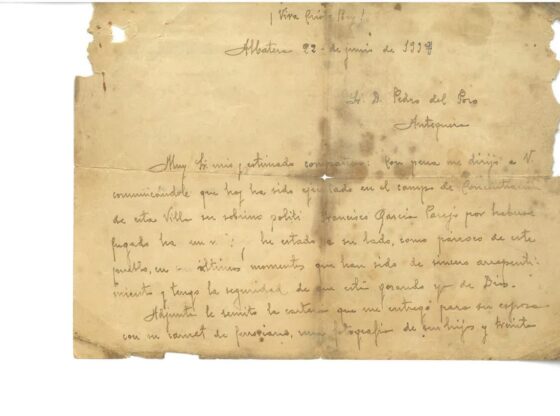 ¡Viva Cristo Rey!
Albatera 22 - de junio de 1939
Sr. D. Pedro del Pozo
Antequera
Muy Sr. mio y estimado compañero: Con pena me dirijo a V.
comunicándole que hoy ha sido ejecutado en el campo de Concentración
de esta Villa su sobrino politi Francisco García Parejo por haberse
fugado he estado a su lado, como párroco de este
pueblo, en últimos momentos que han sido de sincero arrepenti-
miento y tengo la seguridad de que está gozando ya de Dios.
Adjunto le remito la cartera que me entregó para su esposa
con su carnet de ferroviario, una fotografia de sus hijos y treinta